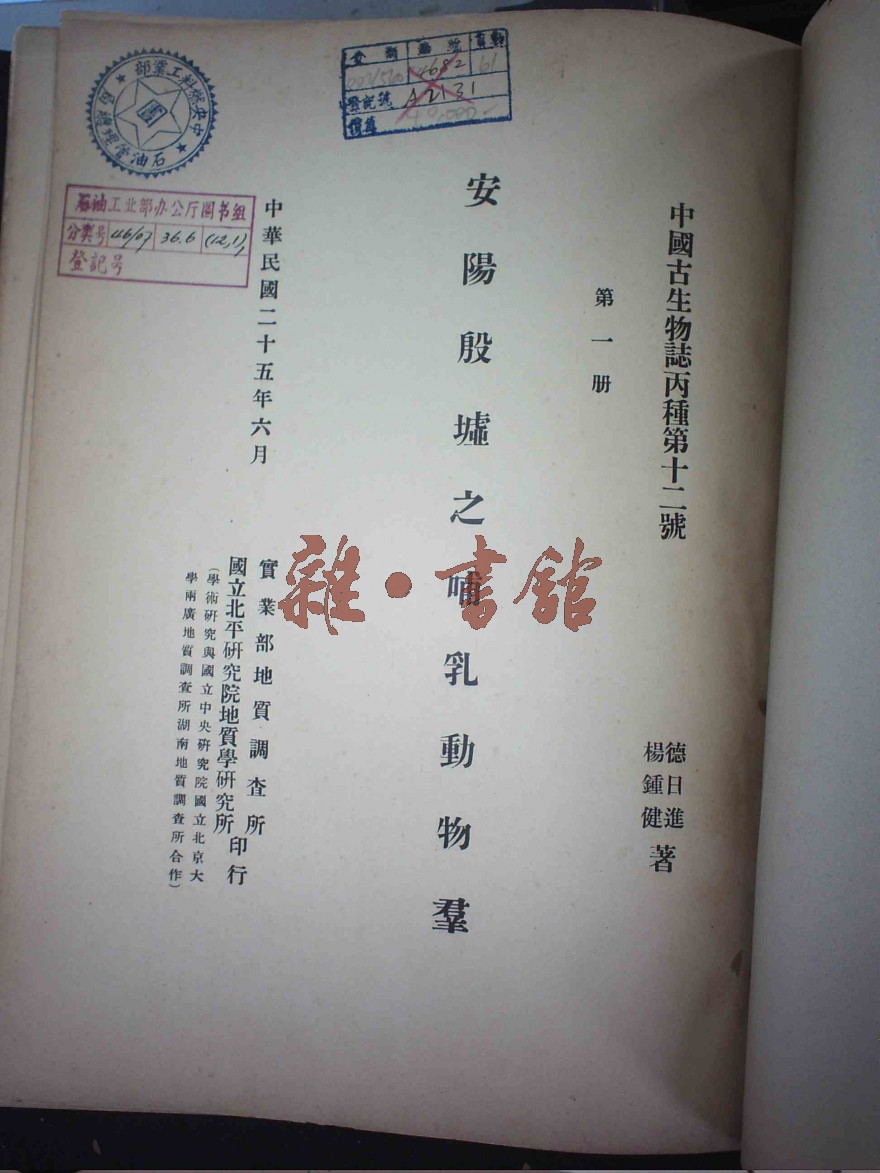 中國古生物誌丙種第十二號
第一册
德日進
楊鍾健
著
安陽殷墟之哺乳動物羣
中華民國二十五年六月
實業部地質調查所
國立北平研究院地質學研究所
印行
(學術研究與國立中央研究院國立北京大
學兩廣地質調查所湖南地質調查所合作)
雜·書館
中央燃料工業部
石油管理總局
圖
石油工业部办公厅图书组
分类号 46/67 36.6 (12,1)
登記号
4682 61
登記號 A2131
價值